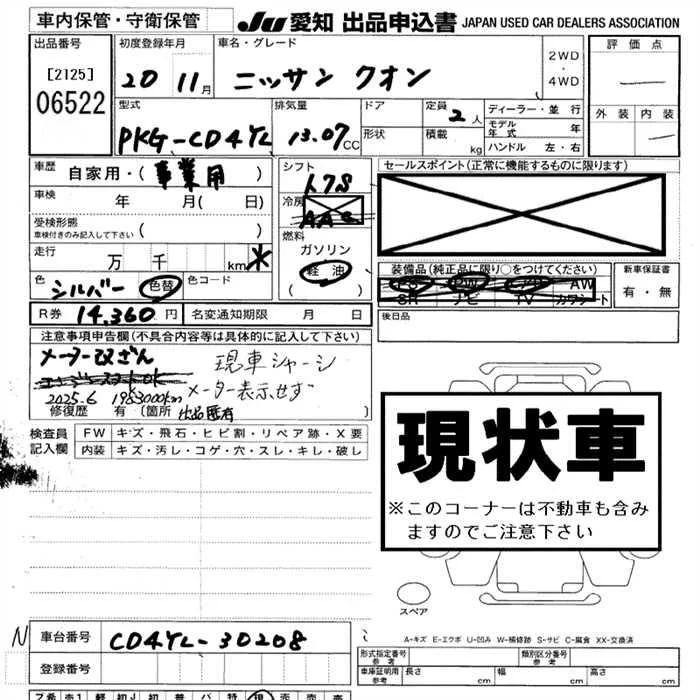 車内保管・守衛保管
JU 愛知 出品申込書 JAPAN USED CAR DEALERS ASSOCIATION
出品番号 初度登録年月 車名・グレード 評価点
[2125] 20 11月 ニッサン クオン 2WD・4WD
06522
外装 内装
型式 排気量 ドア 定員 2人 ディーラー・並行
PKG-CD4YL 13.07CC 形状 積載 kg モデル年式 年
ハンドル 左・右
車歴 自家用・(事業用) シフト セールスポイント(正常に機能するものに限ります)
車検 年 月( 日) 冷房
受検形態
車検付きのみ記入して下さい ( ) 燃料
ガソリン
走行 万 千 km* 軽油 装備品(純正品に限り○をつけてください) 新車保証書
色 シルバー 色替 色コード ( ) PS PW AW 有・無
SR ナビ TV カワシート
R券 14,360円 名変通知期限 月 日 後日品
注意事項申告欄(不具合内容等は具体的に記入して下さい)
メーター改ざん 現車シャーシ
2025.6 1983000km メーター表示せず
修復歴 有(箇所 出品店有
検査員記入欄 FW キズ・飛石・ヒビ割・リペア跡・X要
内装 キズ・汚レ・コゲ・穴・スレ・キレ・破レ
現状車
※このコーナーは不動車も含み
ますのでご注意下さい
スペア
N 車台番号 CD4YL-30208
A-キズ E-エクボ U-凹み W-補修跡 S-サビ C-腐食 XX-交換済
登録番号
形式指定番号 参考 類別区分番号 参考
車庫証明用 参考 長さ cm 幅 cm 高さ cm